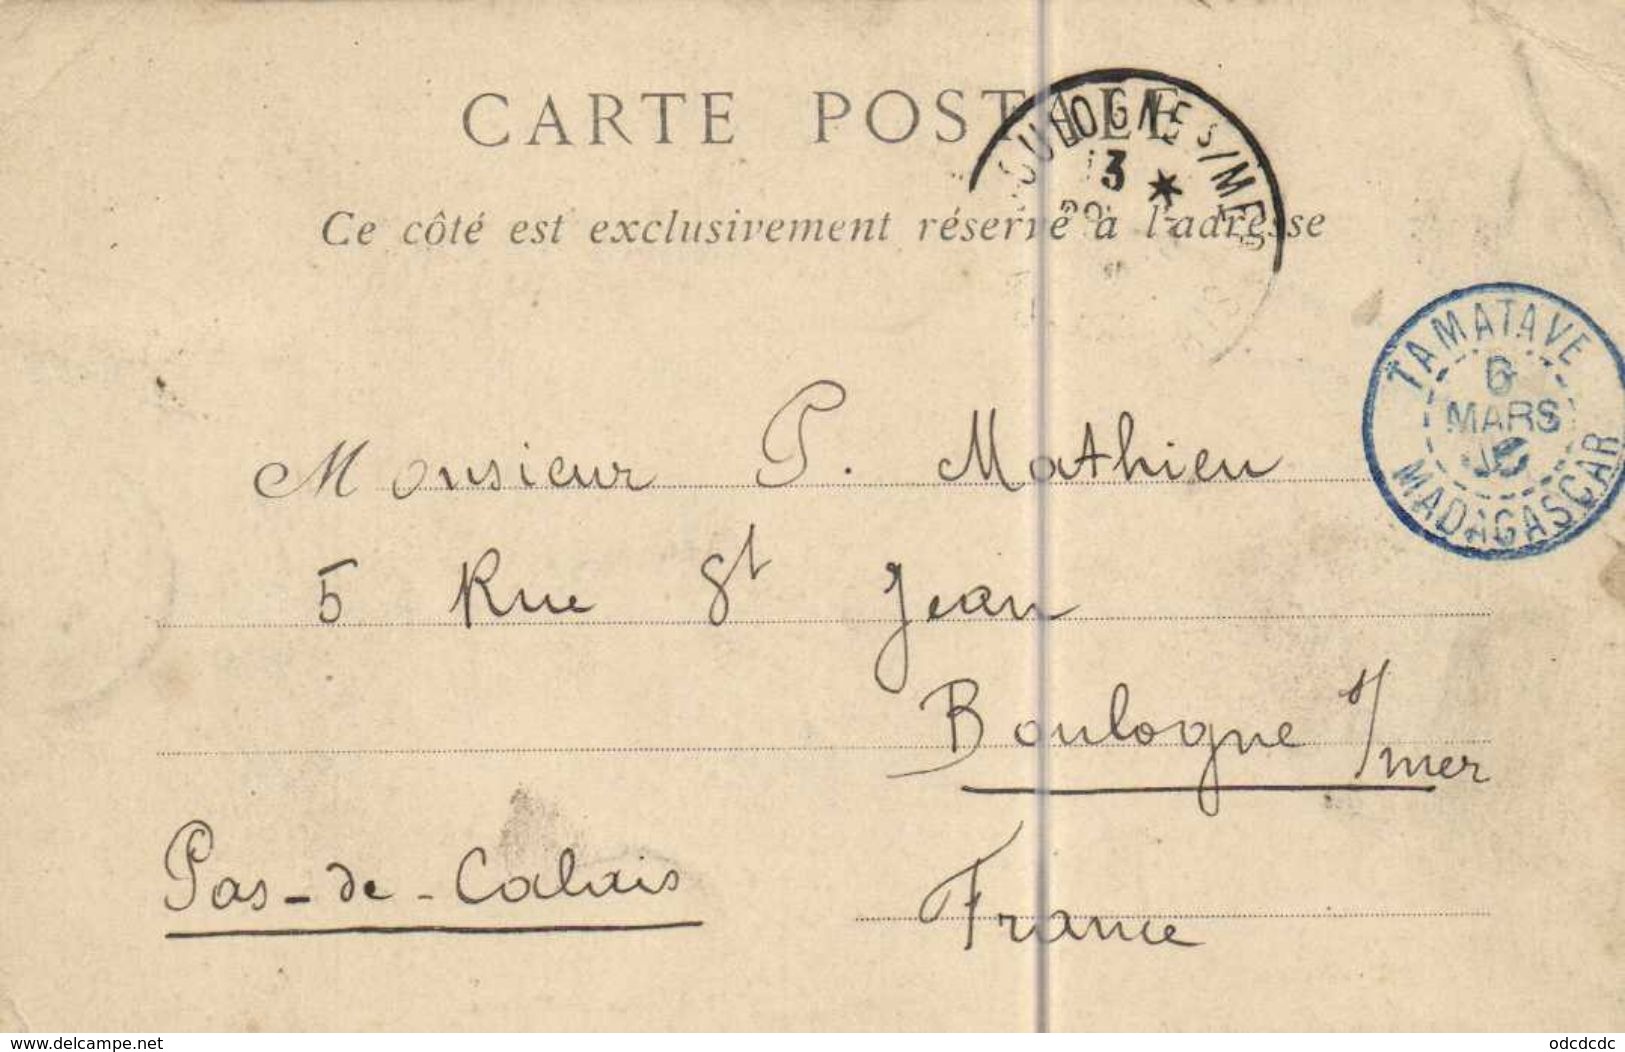 CARTE POSTALE
OULOGNE S/MER
3
Ce côté est exclusivement réservé à l'adresse
TAMATAVE
6
MARS
MADAGASCAR
Monsieur P. Mathieu
5 Rue St Jean
Boulogne s/mer
Pas-de-Calais
France
www.delcampe.net
odcdcdc